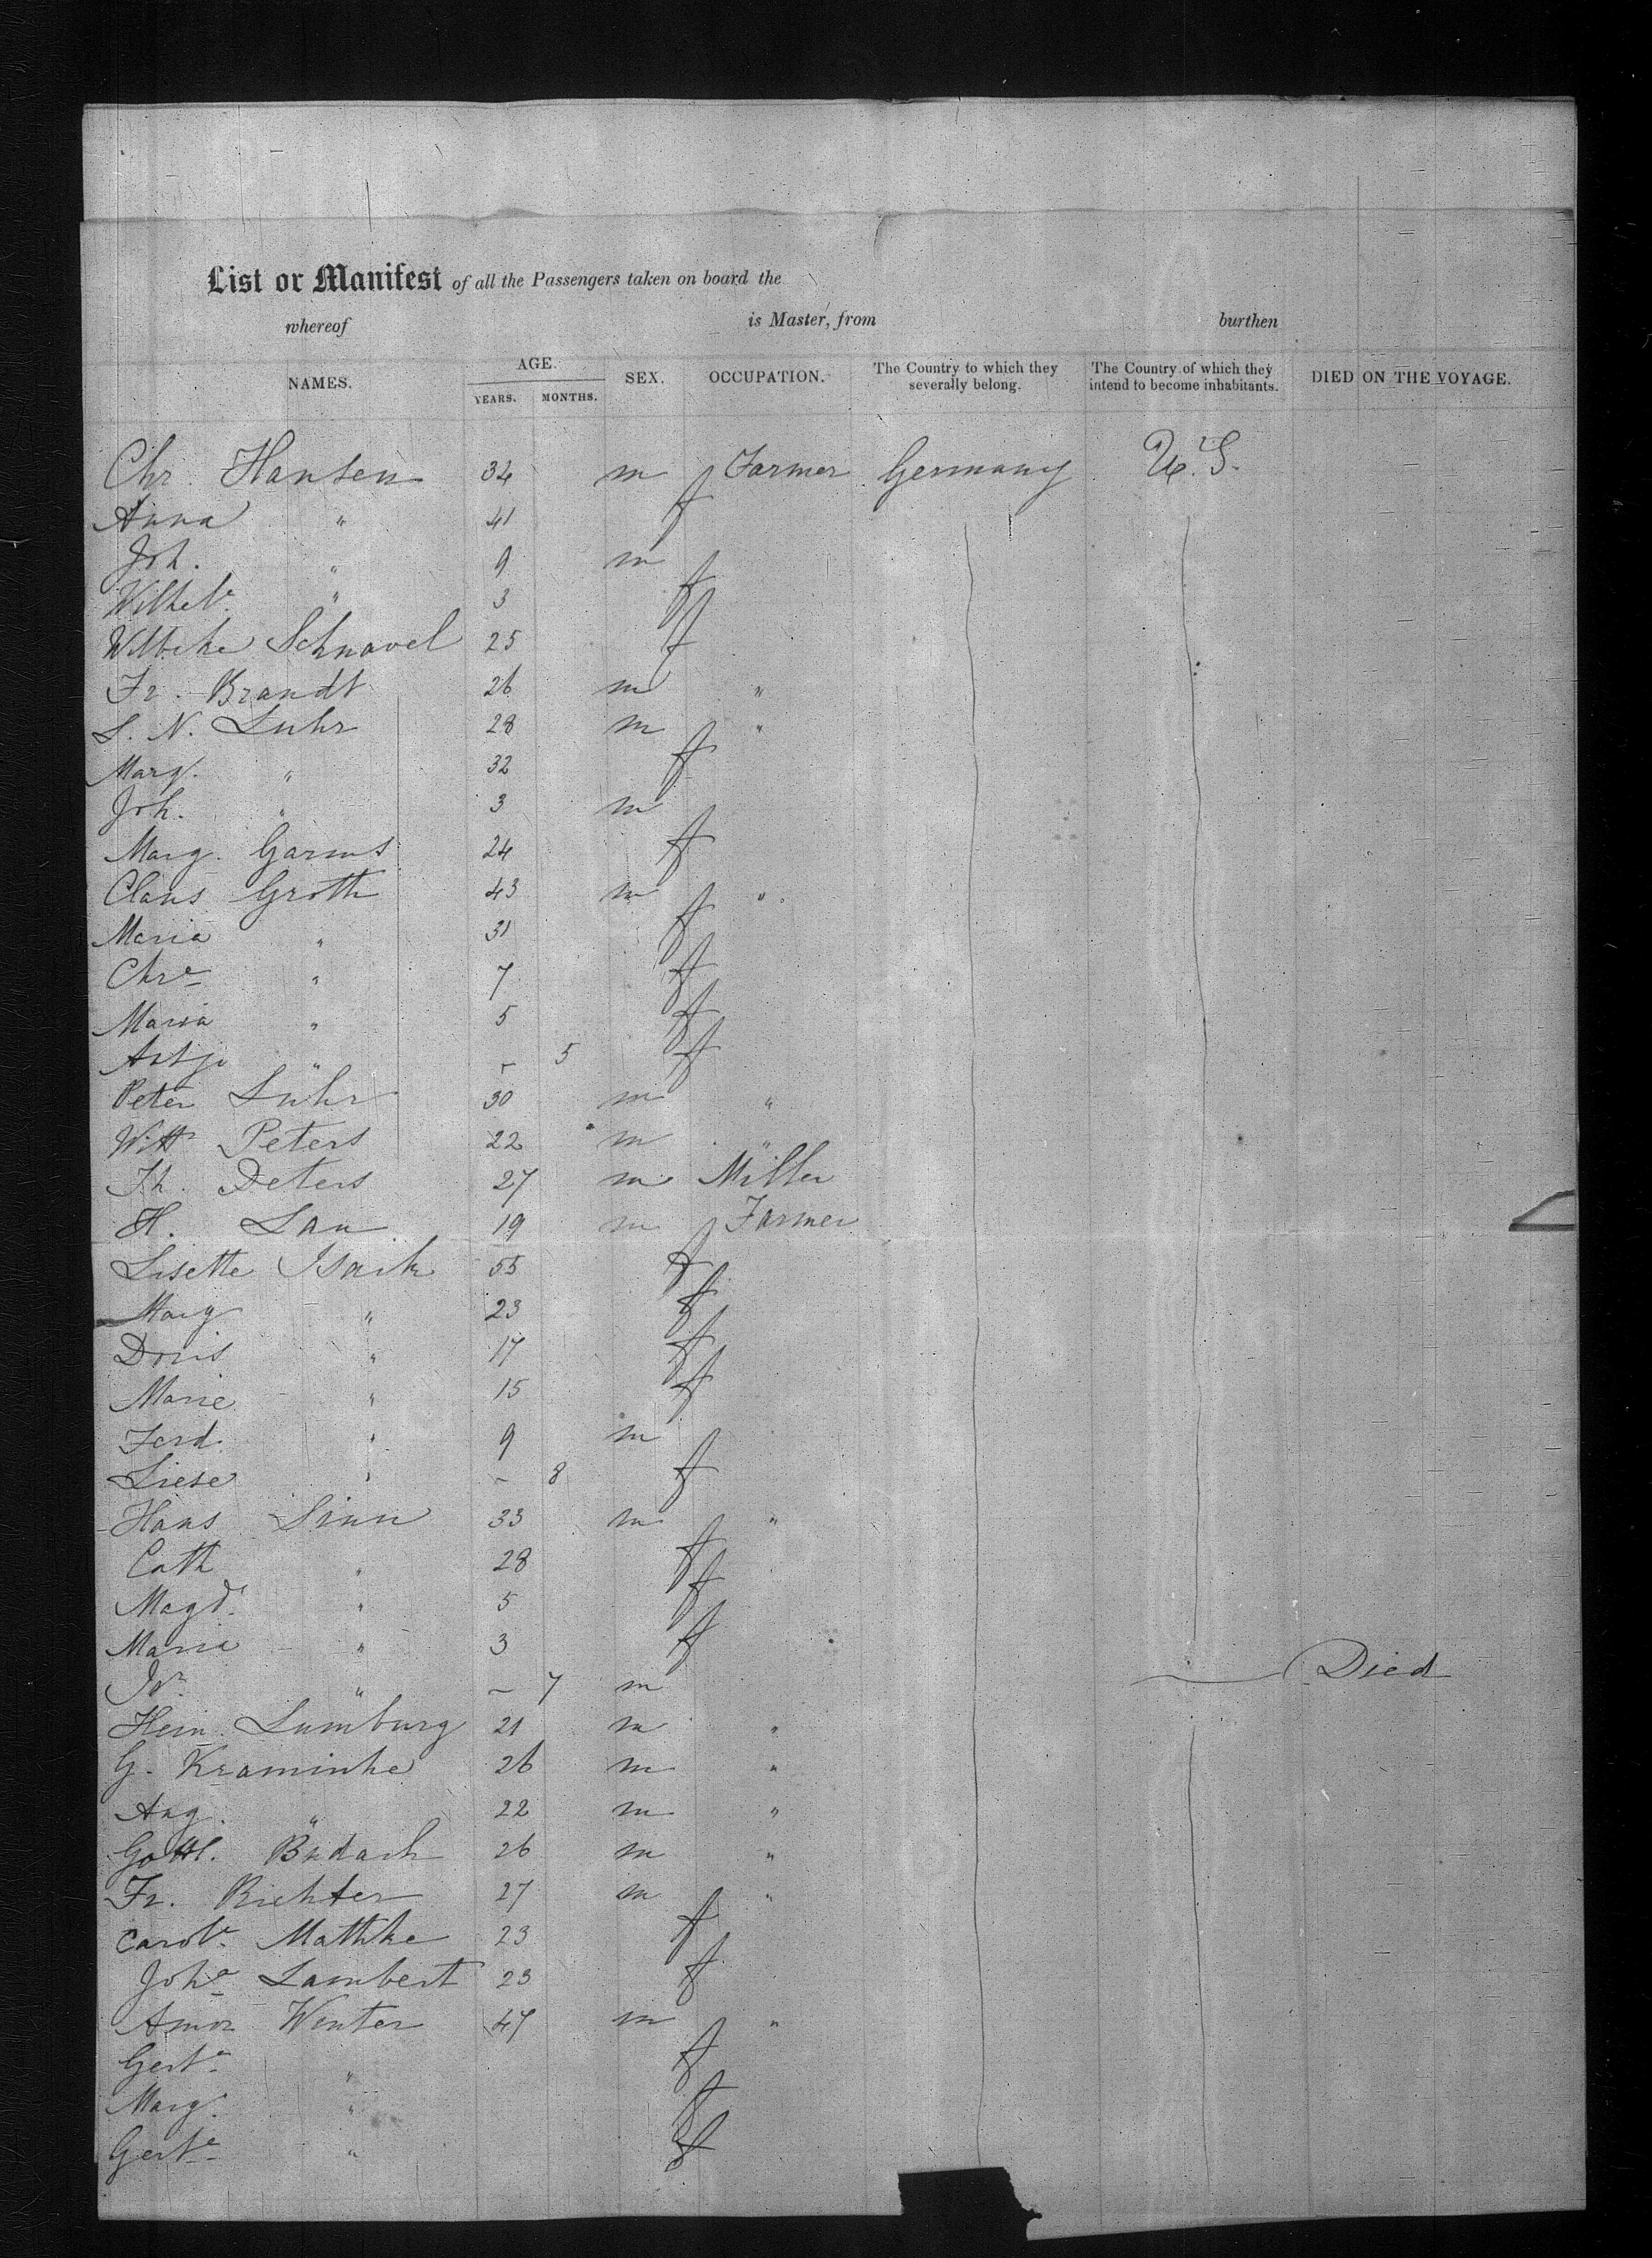 List or Manifest of all the Passengers taken on board the
whereof is Master, from burthen
NAMES. AGE. YEARS. MONTHS. SEX. OCCUPATION. The Country to which they severally belong. The Country of which they intend to become inhabitants. DIED ON THE VOYAGE.
Chr. Hansen 34 m Farmer Germany U.S.
Anna " 41 f
Joh. " 9 m
Wilhel. " 3 f
Wiebcke Schnavel 25 f
Fr. Brandt 26 m "
S. N. Luhr 28 m "
Marg. " 32 f
Joh. " 3 m
Marg. Garms 24 f
Claus Groth 43 m "
Maria " 31 f
Chre " 7 f
Maria " 5 f
Antje " - 5 f
Peter Lühr 30 m "
Witt Peters 22 m "
Th. Deters 27 m Miller
H. Lau 19 m Farmer
Lisette Isack 55 f
Marg " 23 f
Doris " 17 f
Marie " 15 f
Ferd. " 9 m
Liese " - 8 f
Hans Sinn 33 m "
Cath " 28 f
Magd. " 5 f
Maria " 3 f
" - 7 m Died
Hein. Lumburg 21 m "
G. Kraminke 26 m "
Aug. " 22 m "
Gottl. Budach 26 m "
Fr. Richter 27 m "
Carole. Mathke 23 f
Joha Lambert 23 f
Winter 47 m "
Gerte " f
Marg. " f
Gerte " f